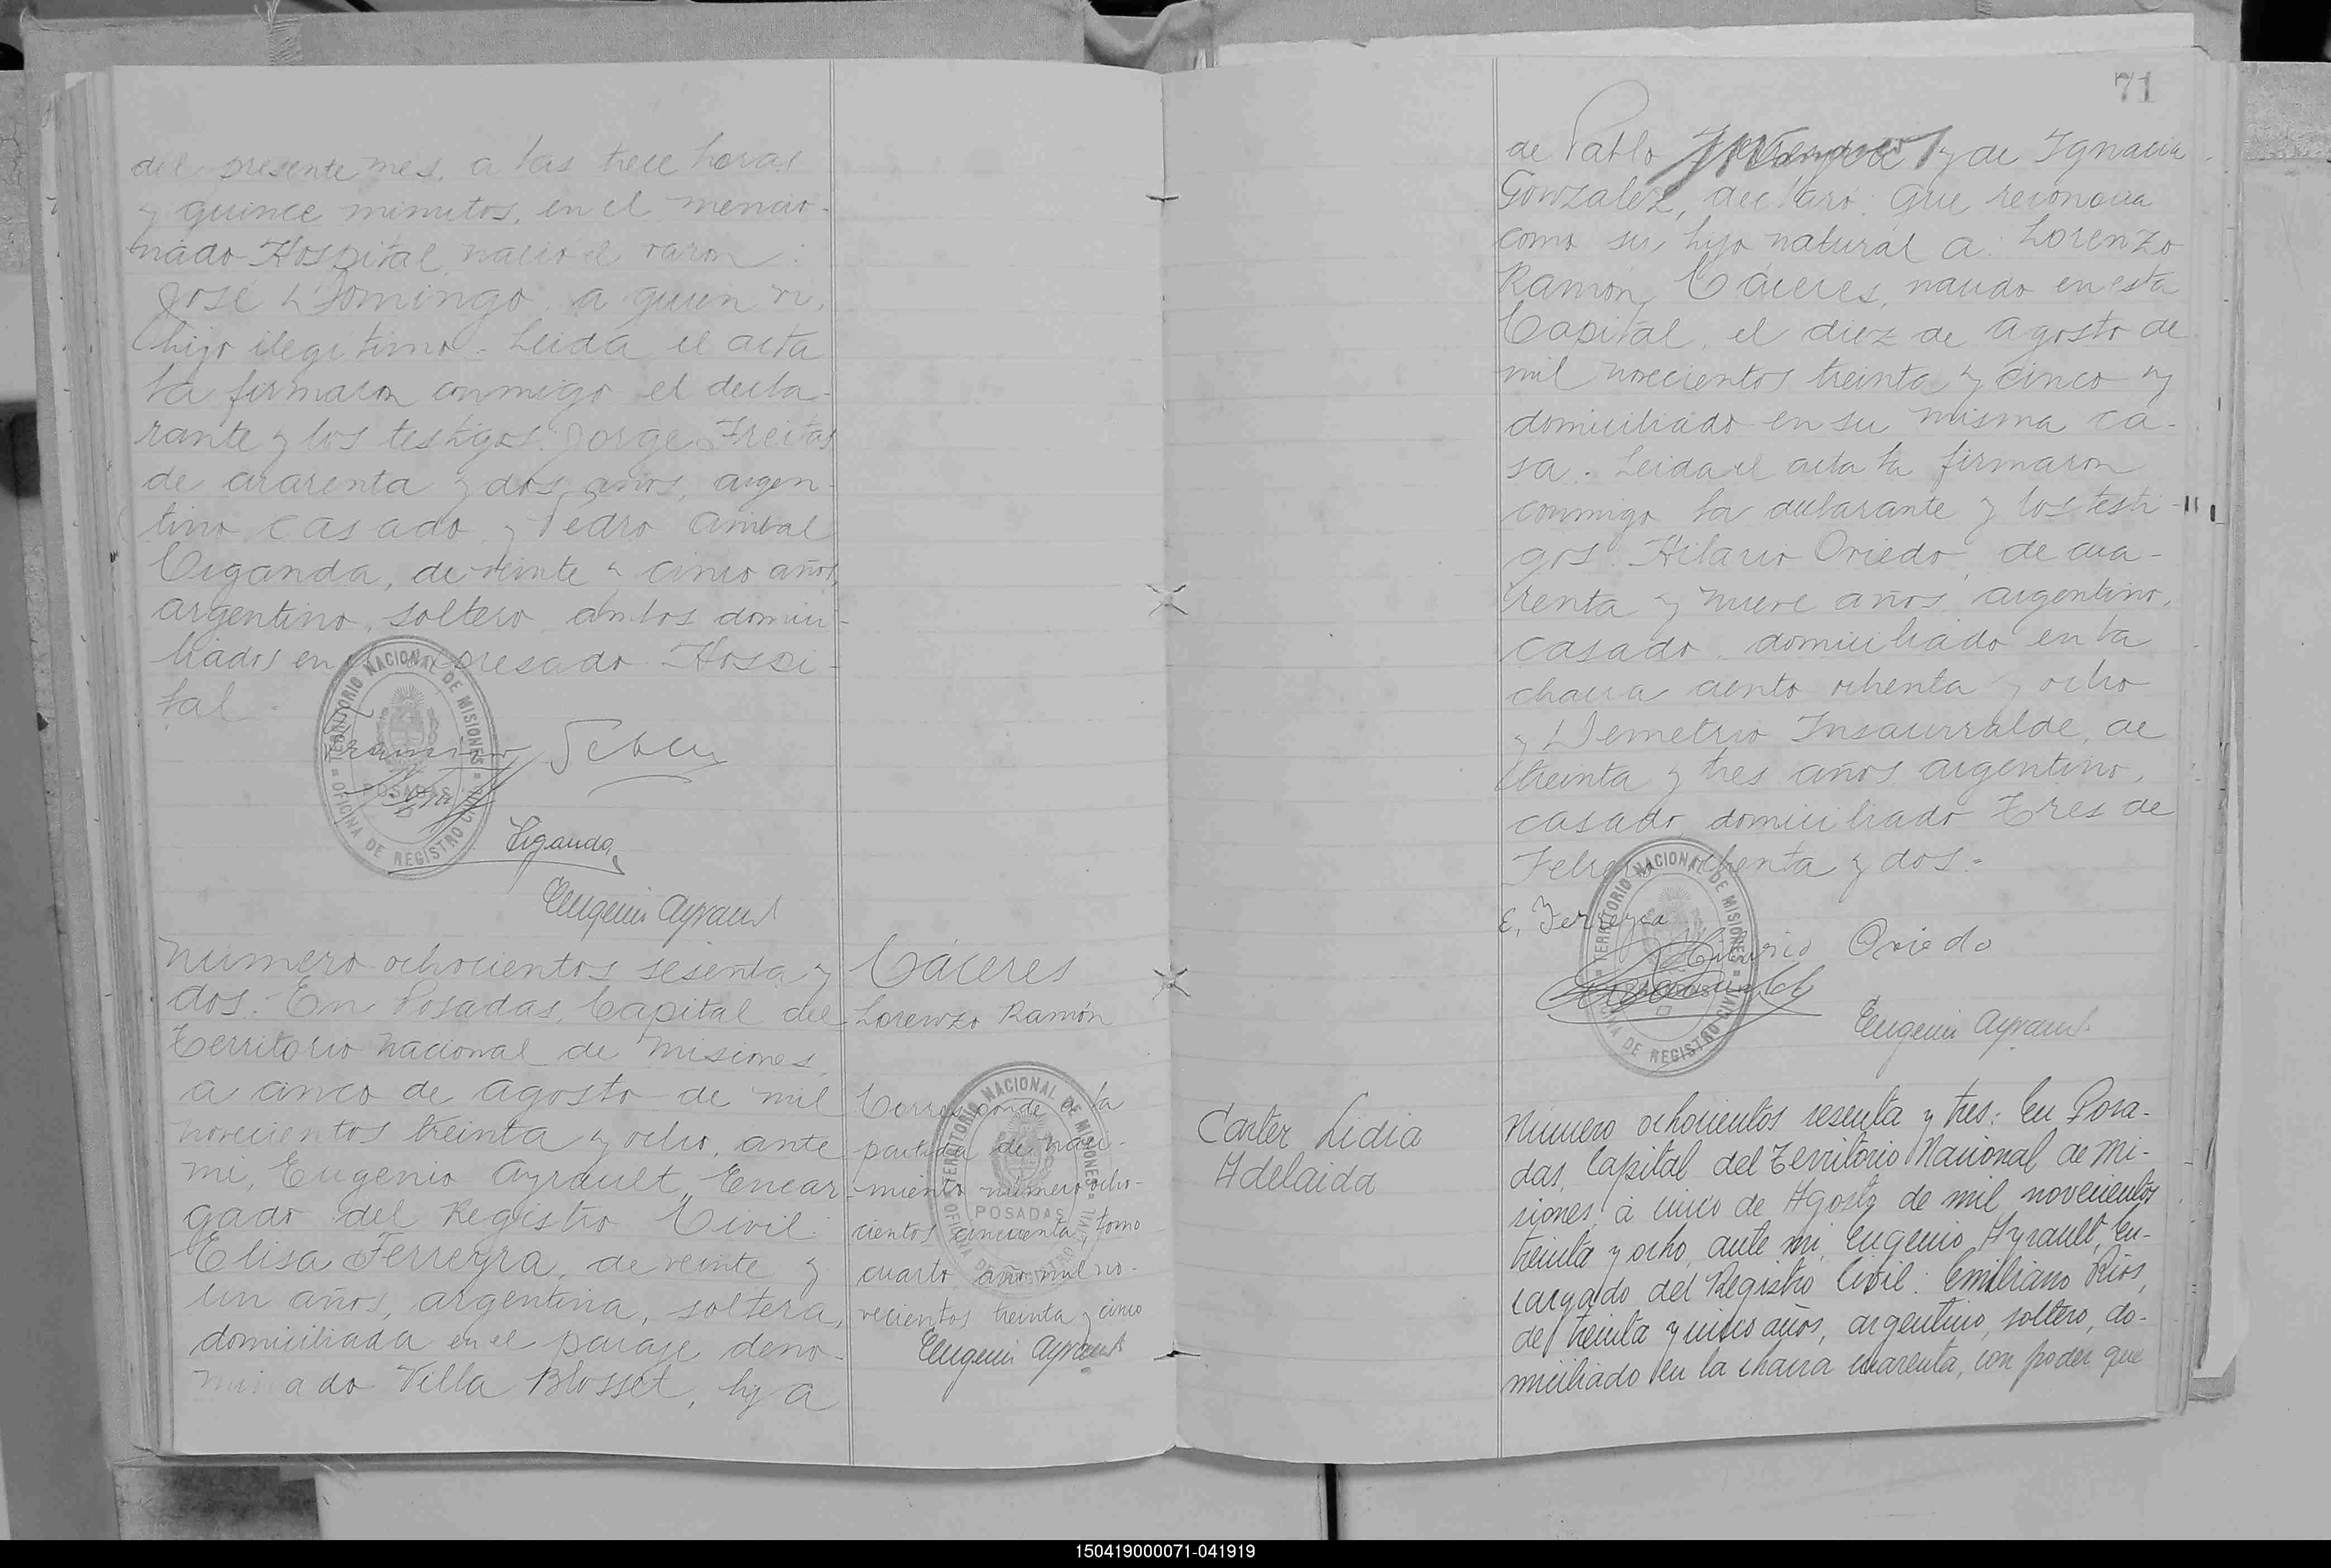 del presente mes, a las trece horas
y quince minutos, en el mencio-
nado Hospital nació el varon:
José Domingo, a quien vi,
hijo ilegitimo - Leida el acta
la firmaron conmigo el decla-
rante y los testigos: Jorge Freitas
de cuarenta y dos años, argen-
tino, casado y Pedro Anibal
Ciganda, de veinte y cinco años,
argentino, soltero, ambos domici-
liados en el expresado Hospi-
tal.
TERRITORIO NACIONAL DE MISIONES
POSADAS
OFICINA DE REGISTRO CIVIL
Ciganda
Eugenio Ayrault
Numero ochocientos sesenta y
dos: En Posadas, Capital del
Territorio Nacional de Misiones,
a cinco de Agosto de mil
novecientos treinta y ocho, ante
mi, Eugenio Ayrault, Encar-
gado del Registro Civil:
Elisa Ferreyra, de veinte y
un años, argentina, soltera,
domiciliada en el paraje deno-
minado Villa Blosset, hija
Cáceres
Lorenzo Ramón
Corresponde a la
partida de naci-
miento número ocho-
cientos cincuenta, tomo
cuarto, año mil no-
vecientos treinta y cinco
Eugenio Ayrault
TERRITORIO NACIONAL DE MISIONES
POSADAS
OFICINA DE REGISTRO CIVIL
71
de Pablo y de Ignacia
Gonzalez, declaró: Que reconocia
como su hijo natural a: Lorenzo
Ramón Cáceres, nacido en esta
Capital, el diez de Agosto de
mil novecientos treinta y cinco y
domiciliado en su misma ca-
sa. Leida el acta la firmaron
conmigo la declarante y los testi-
gos: Hilario Oviedo, de cua-
renta y nueve años, argentino,
casado, domiciliado en la
chacra ciento ochenta y ocho
y Demetrio Insaurralde, de
treinta y tres años, argentino,
casado, domiciliado Tres de
Febrero ochenta y dos.
E. Ferreyra
Hilario Oviedo
Eugenio Ayrault
TERRITORIO NACIONAL DE MISIONES
POSADAS
OFICINA DE REGISTRO CIVIL
Carter Lidia
Adelaida
Numero ochocientos sesenta y tres: En Posa-
das, Capital del Territorio Nacional de Mi-
siones, á cinco de Agosto de mil novecientos
treinta y ocho, ante mi, Eugenio Ayrault, En-
cargado del Registro Civil: Emiliano Rios,
de treinta y cinco años, argentino, soltero, do-
miciliado en la chacra cuarenta, con poder que
150419000071-041919